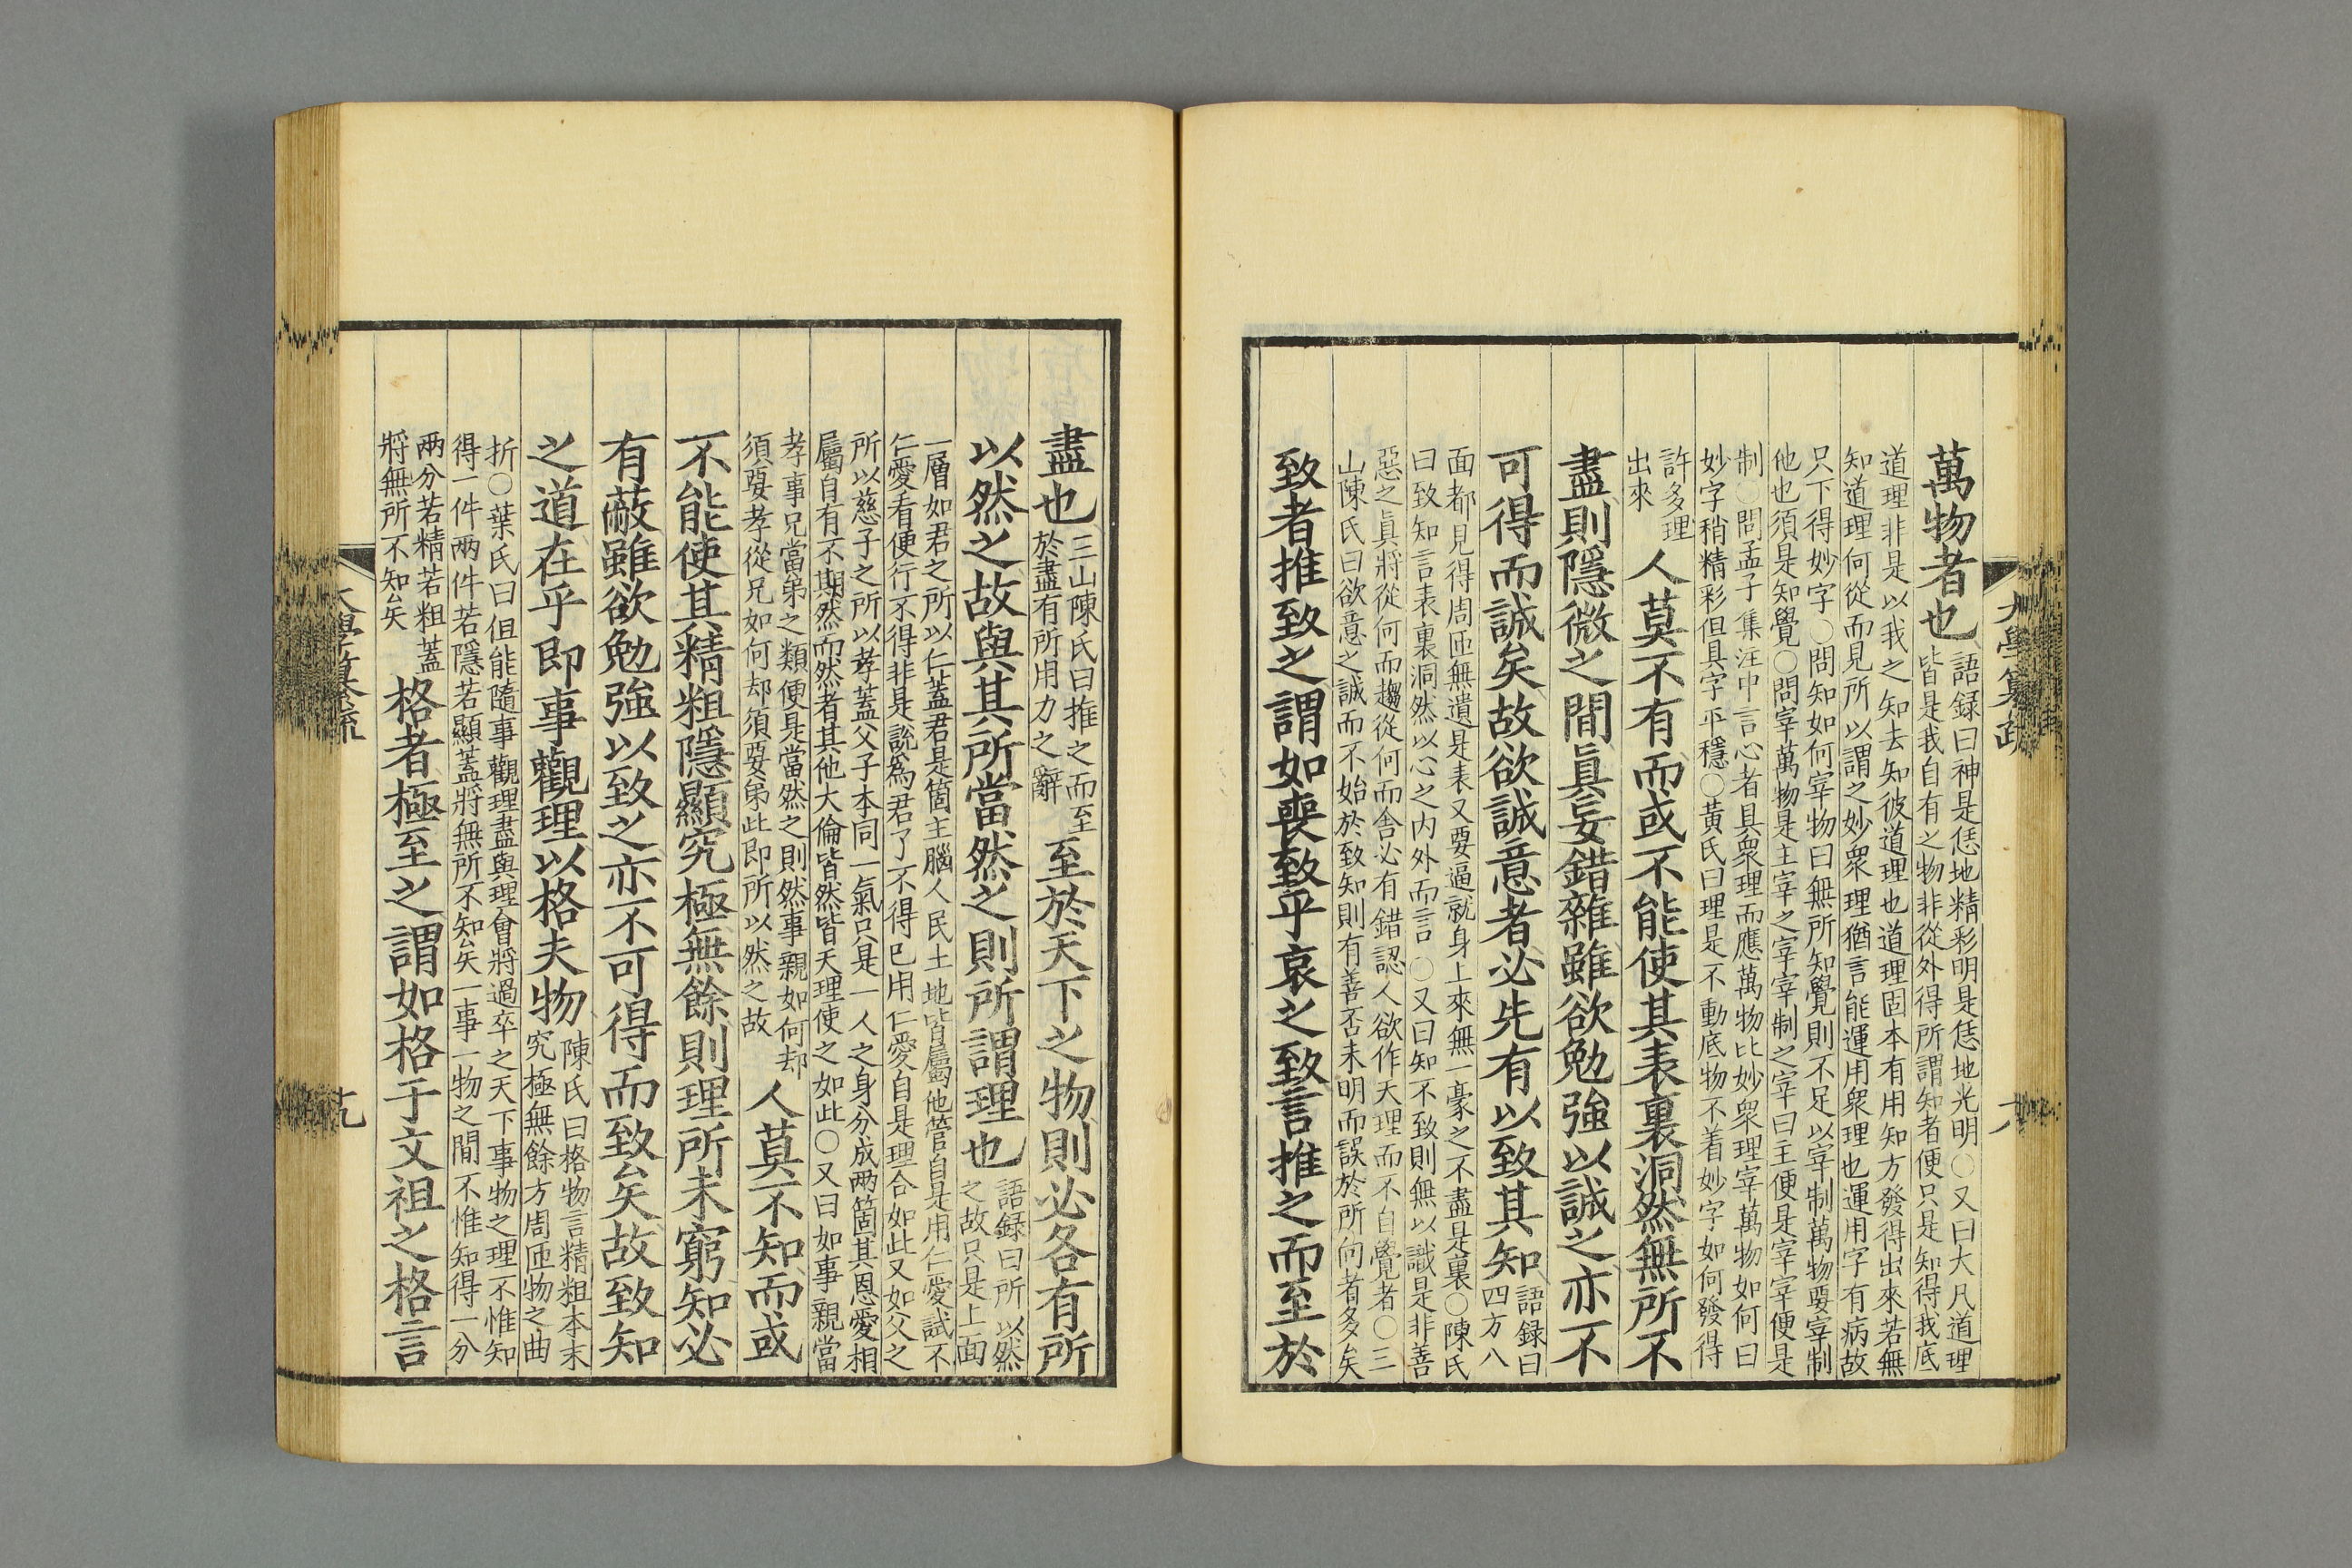 大學纂疏
萬物者也
語録曰神是恁地精彩明是恁地光明○又曰大凡道理
皆是我自有之物非從外得所謂知者便只是知得我底
道理非是以我之知去知彼道理也道理固本有用知方發得出來若無
知道理何從而見所以謂之妙衆理猶言能運用衆理也運用字有病故
只下得妙字○問知如何宰物曰無所知覺則不足以宰制萬物要宰制
他也須是知覺○問宰萬物是主宰之宰宰制之宰曰主便是宰宰便是
制○問孟子集注中言心者具衆理而應萬物比妙衆理宰萬物如何曰
妙字稍精彩但具字平穩○黃氏曰理是不動底物不着妙字如何發得
許多理
出來
人莫不有而或不能使其表裏洞然無所不
盡則隱微之間眞妄錯雜雖欲勉強以誠之亦不
可得而誠矣故欲誠意者必先有以致其知
語録曰
四方八
面都見得周匝無遺是表又要逼就身上來無一豪之不盡是裏○陳氏
曰致知言表裏洞然以心之内外而言○又曰知不致則無以識是非善
惡之眞將從何而趨從何而舍必有錯認人欲作天理而不自覺者○三
山陳氏曰欲意之誠而不始於致知則有善否未明而誤於所向者多矣
致者推致之謂如喪致乎哀之致言推之而至於
盡也
三山陳氏曰推之而至
於盡有所用力之辭
至於天下之物則必各有所
以然之故與其所當然之則所謂理也
語録曰所以然
之故只是上面
一層如君之所以仁蓋君是箇主腦人民土地皆屬他管自是用仁愛試不
仁愛看便行不得非是說爲君了不得已用仁愛自是理合如此又如父之
所以慈子之所以孝蓋父子本同一氣只是一人之身分成兩箇其恩愛相
屬自有不期然而然者其他大倫皆然皆天理使之如此○又曰如事親當
孝事兄當弟之類便是當然之則然事親如何却
須要孝從兄如何却須要弟此即所以然之故
人莫不知而或
不能使其精粗隱顯究極無餘則理所未窮知必
有蔽雖欲勉強以致之亦不可得而致矣故致知
之道在乎即事觀理以格夫物
陳氏曰格物言精粗本末
究極無餘方周匝物之曲
折○葉氏曰但能隨事觀理盡與理會將過卒之天下事物之理不惟知
得一件兩件若隱若顯蓋將無所不知矣一事一物之間不惟知得一分
兩分若精若粗蓋
將無所不知矣
格者極至之謂如格于文祖之格言
大學纂疏
十九